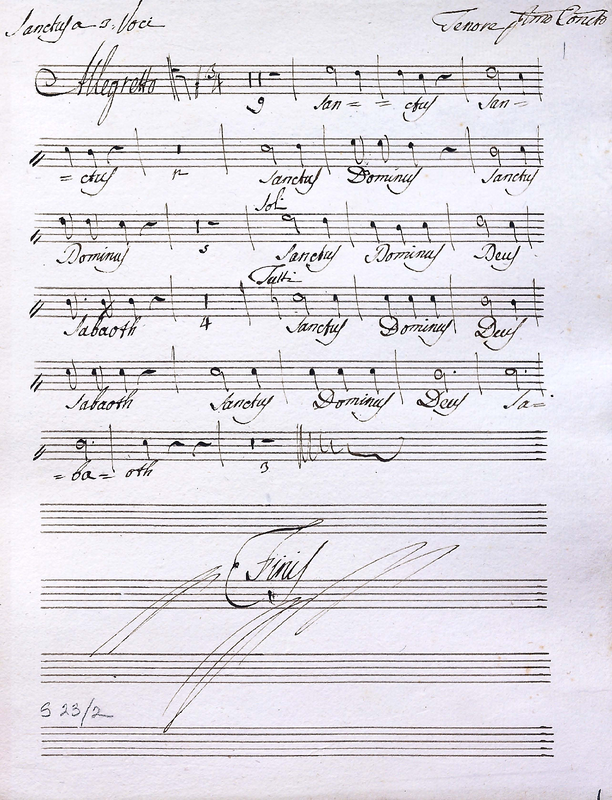 Sanctus a 3. Voci Tenore
Allegretto
9 San = = ctus San =
= ctus 12 Sanctus Dominus Sanctus
Soli
Dominus 5 Sanctus Dominus Deus
Tutti
Sabaoth 4 Sanctus Dominus Deus
Sabaoth Sanctus Dominus Deus Sa=
= ba = oth 3
Finis
S 23/2